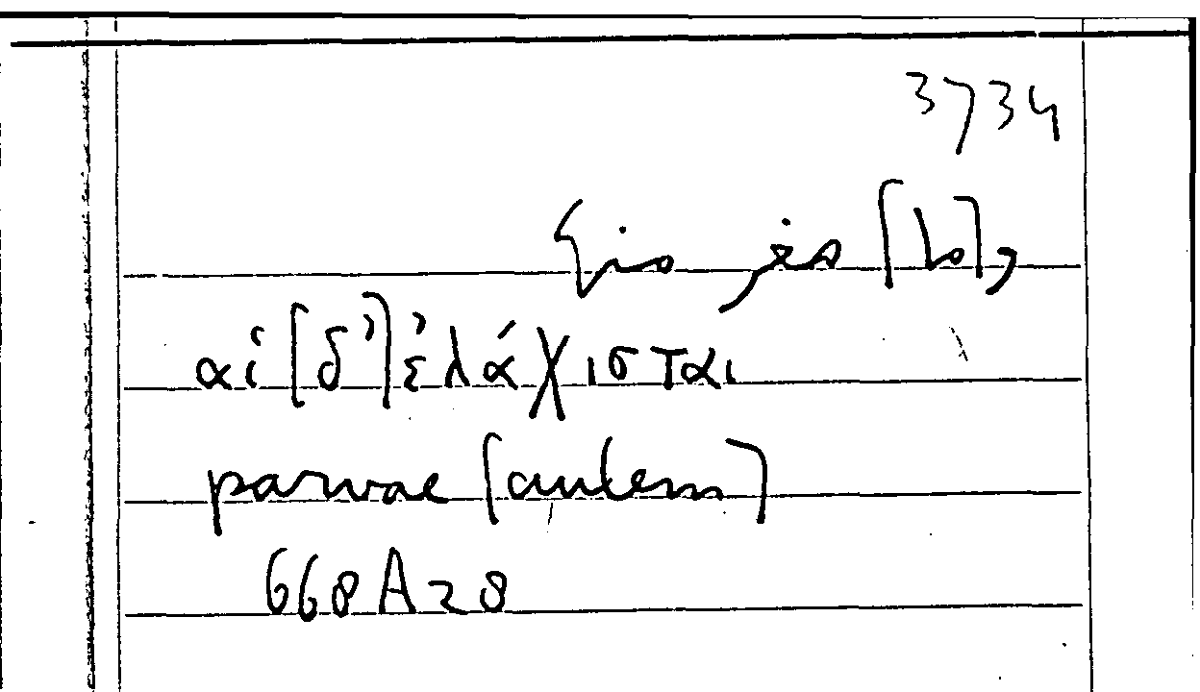 3734
αἱ [δ'] ἐλάχισται
parvae [autem]
668A28